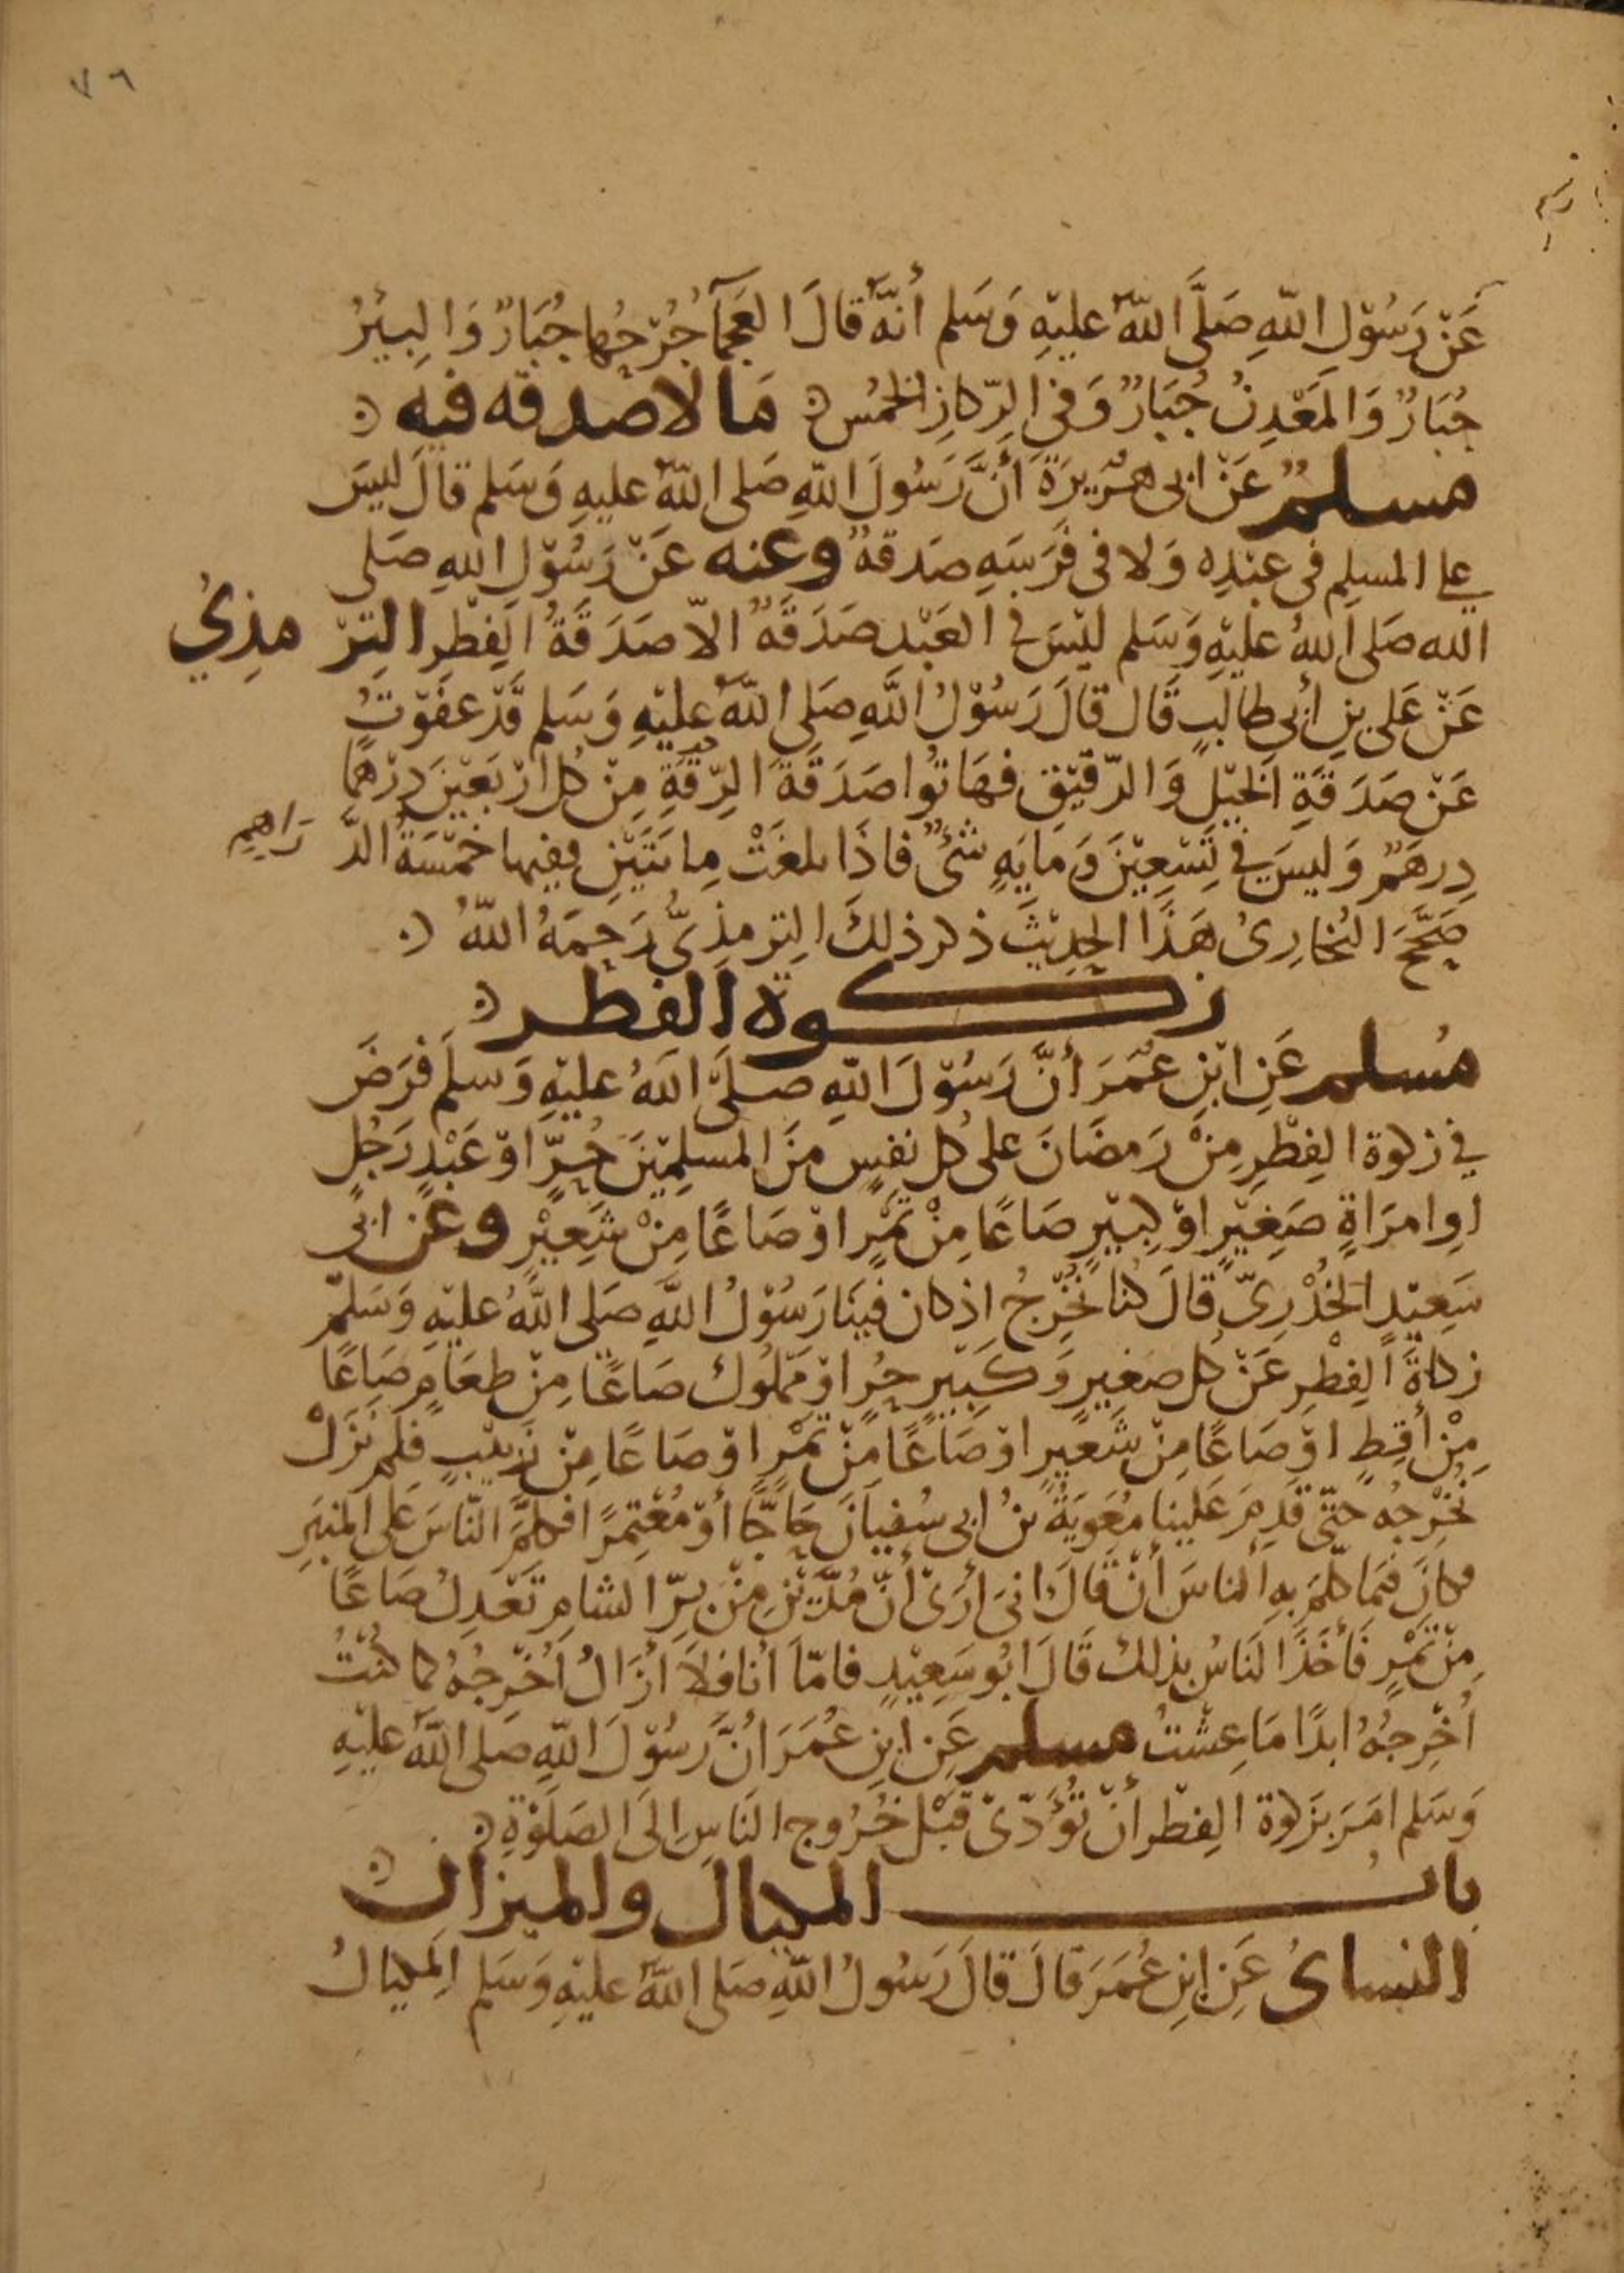 ٧٦
عَنْ رَسُوْلِ اللّهِ صَلَّى اللّهُ عَليْهِ وَسَلم أنهُ قالَ العَجمَآ جُرْحُها جُبَارٌ وَالبِيْرُ
جُبَارٌ وَالمَعْدِنُ جُبَارٌ وَفي الرِّكازِ الخُمُس مَا لا صَدقه فيه
مسلمٌ عَنْ ابى هُرَيرَةَ أنَّ رَسُولَ اللّهِ صَلى اللّهُ عليهِ وَسَلم قالَ ليسَ
على المسلِم فى عبْدِه وَلا فى فرَسَهِ صَدقةٌ وعنه عَنْ رَسُوْلِ اللهِ صَلى
الله صَلى اللهُ عَليْهِ وَسَلم ليْسَ فى العَبْدِ صَدَقَةٌ الاّ صَدَقَةُ الفِطْرِ التِرْمذِيُ
عَنْ عَلى بنِ أبى طالبٍ قَال قالَ رَسُوْلُ اللَّهِ صَلى اللّهُ عليْهِ وَسَلم قَدْ عَفَوْتُ
عَنْ صَدَقَةِ الخَيْلِ وَالرّقيْقِ فهَاتوُا صَدَقَةَ الرِّقَةِ مِنْ كُل ارْبَعيْنَ دِرْهمًا
دِرهَمٌ وَليسَ في تِسْعِيْنَ وَمَايَهٍ شئٌ فاذَا بلغَتْ مِايتَيْنِ ففيها خَمْسَةُ الدَّرَاهِمِ
صَحَّحَ البُخارِىُ هَذَا الحدِيْثَ ذكر ذلكَ التِرمذِىُّ رَحِمَهُ اللّهُ
زكوة الفطر
مُسلم عَنِ ابْنِ عُمَرَ أنَّ رَسُوْلَ اللّهِ صلَّى اللهُ عليْهِ وَسلمَ فرَضَ
في زكوة الفِطْرِ مِنْ رَمضَانَ على كُل نفسٍ منَ المسلِمِيْنَ حُرٍّ اوْ عَبْدٍ رَجُلٍ
اوِ امرَاةٍ صَغِيْرٍ اوْ كبيْرٍ صَاعًا مِنْ تمْرٍ اوْ صَاعًا مِنْ شَعِيْرٍ وعَن ابى
سَعِيْدٍ الخُدْرِىّ قالَ كُنا نُخْرِجُ اذ كان فينَا رَسُوْلُ اللَّهِ صَلى اللَّهُ عليْهِ وَسَلمَ
زكاةَ الفِطْرِ عَنْ كُل صَغيرٍ وَكَبيْرٍ حُرٍ اوْ مَمْلوُك صَاعًا مِنْ طعَامٍ صَاعًا
مِنْ أقِطٍ اوْ صَاعًا مِنْ شَعيرٍ اوْ صَاعًا مِنْ تمْرٍ اوْ صَاعًا مِنْ زَبيْبٍ فلم نزَلْ
نُخْرِجُه حتّى قَدِمَ عَلَينا مُعَوِيَةُ بنُ ابى سُفيانَ حَاجًّا أوْ مُعْتِمرًا فكلَّمَ النّاسَ عَلى المنبَرِ
فكانَ فيمَا كلّمَ بهِ الناسَ أنْ قَالَ انى أرَىَ أنّ مُدَّيْنِ مِنْ بُرّ الشامِ تَعْدِلُ صَاعًا
مِنْ تمْرٍ فَأخَذَ النَاسُ بذلك قَالَ ابُو سَعِيْدٍ فامّا أنا فلاَ أزَالُ اُخْرِجُهُ كما كُنْتُ
اُخْرِجُهُ ابدًا مَا عِشْتُ مسلم عَنِ ابنِ عُمَرَ انَّ رَسُوْلَ اللّهِ صلى اللّهُ عليْهِ
وَسَلم امَرَ بزَكوة الفِطْر أنْ تُؤَدّىْ قبْلَ خُرُوج النَاسِ الىَ الصَلَوْةِ
باب المكيال والميزان
النساىُ عَنِ ابنِ عُمَرَ قالَ قالَ رَسُولُ اللّهِ صَلى اللّهُ عليْهِ وَسَلم المِكيالُ